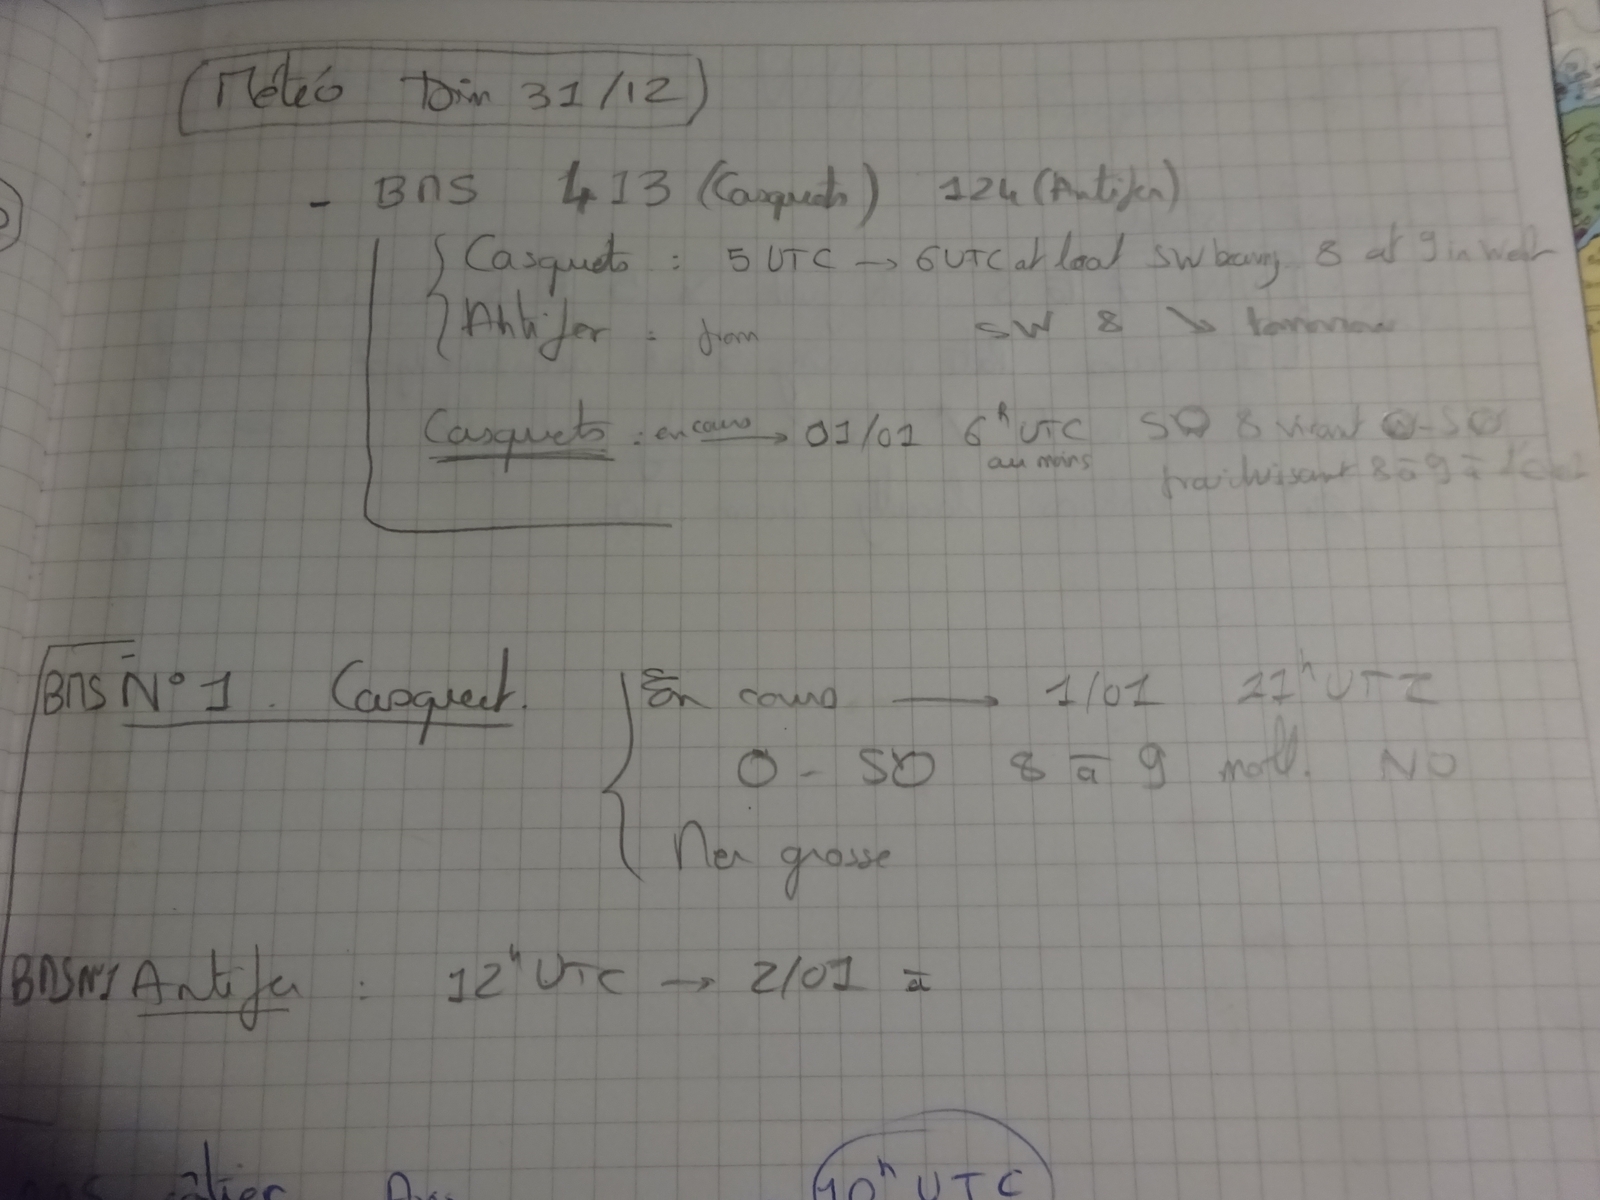 Météo Dim 31/12
- BMS 413 (Casquets) 124 (Antifer)
Casquets : 5 UTC → 6 UTC at least SW 8 at 9 in West
Antifer : from SW 8 ↘ tomorrow
Casquets : en cours → 01/01 6h UTC SO 8 virant O-SO
au moins
fraichissant 8 à 9 à
BMS N° 1. Casquet. En cours → 1/01 21h UTC
O - SO 8 à 9 moll. NO
Mer grosse
BMS N°1 Antifer : 12h UTC → 2/01 à
10h UTC